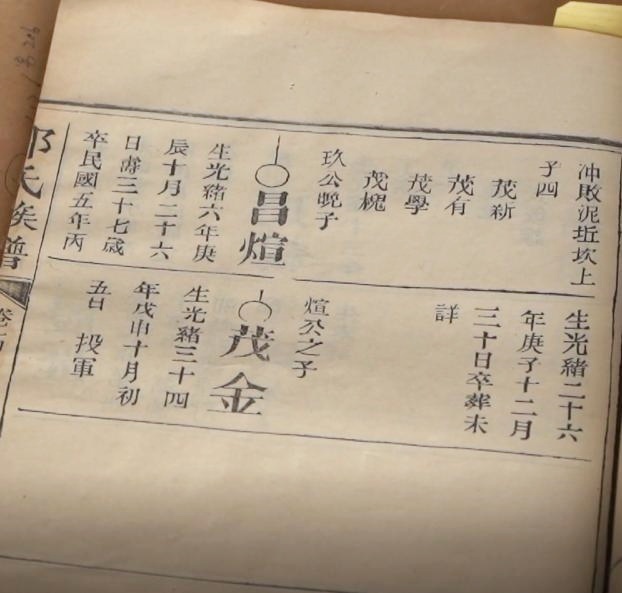 沖敗泥坵坎上
子四
茂新
茂有
茂學
茂槐
玖公晚子
昌煊
生光緒六年庚
辰十月二十六
日壽三十七歳
卒民國五年丙
生光緒二十六
年庚子十二月
三十日卒葬未
詳
煊公之子
茂金
生光緒三十四
年戊申十月初
五日 投軍
氏族譜